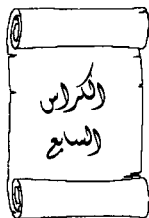 الكراس
السابع